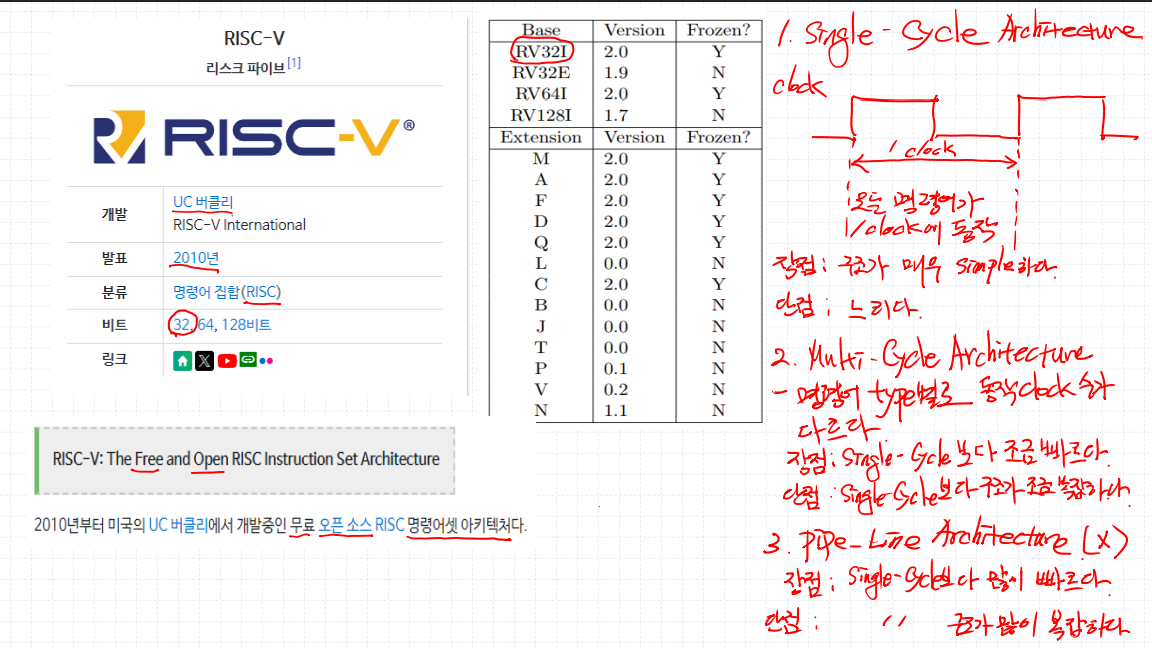 RISC-V
리스크 파이브[1]
RISC-V®
개발
UC 버클리
RISC-V International
발표
2010년
분류
명령어 집합(RISC)
비트
32, 64, 128비트
링크
RISC-V: The Free and Open RISC Instruction Set Architecture
2010년부터 미국의 UC 버클리에서 개발중인 무료 오픈 소스 RISC 명령어셋 아키텍처다.
Base Version Frozen?
RV32I 2.0 Y
RV32E 1.9 N
RV64I 2.0 Y
RV128I 1.7 N
Extension Version Frozen?
M 2.0 Y
A 2.0 Y
F 2.0 Y
D 2.0 Y
Q 2.0 Y
L 0.0 N
C 2.0 Y
B 0.0 N
J 0.0 N
T 0.0 N
P 0.1 N
V 0.2 N
N 1.1 N
1. Single-Cycle Architecture
clock
1 clock
모든 명령어가
1/clock에 동작
장점 : 구조가 매우 simple하다.
단점 : 느리다.
2. Multi-Cycle Architecture
- 명령어 type별로 동작 clock 수가
다르다
장점 : Single-Cycle보다 조금 빠르다.
단점 : Single-Cycle보다 구조가 조금 복잡하다.
3. Pipe-Line Architecture (X)
장점 : Single-Cycle보다 많이 빠르다.
단점 : 〃 구조가 많이 복잡하다